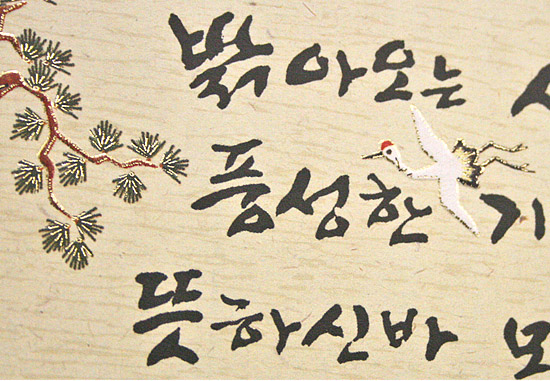 밝아오는
풍성한 기
뜻하신바 모